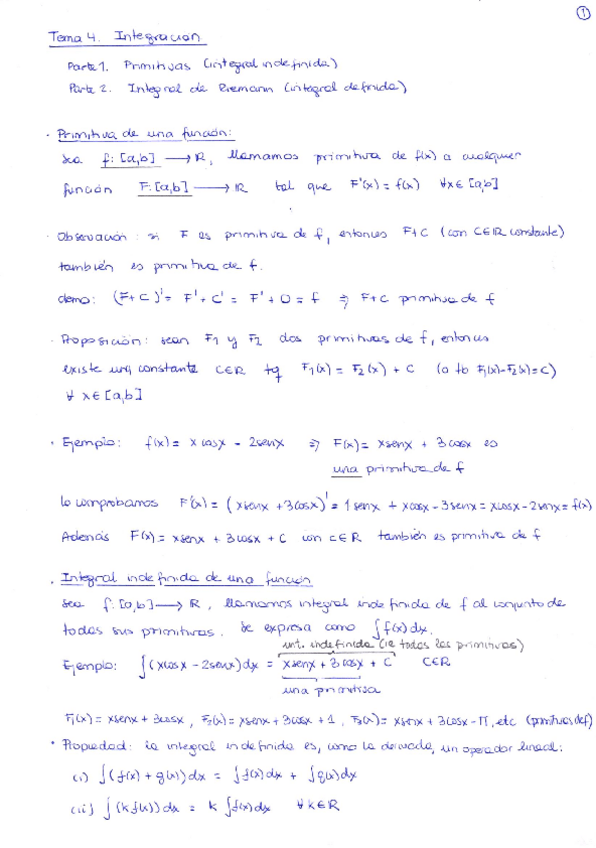 1
Tema 4. Integracion
Parte 1. Primitivas (integral indefinida)
Parte 2. Integral de Riemann (integral definida)
· Primitiva de una función:
sea f: [a,b] → R, llamamos primitiva de f(x) a cualquier
función F: [a,b] → R tal que F'(x) = f(x) ∀x∈[a,b]
· Observación: si F es primitiva de f, entonces F+C (con C∈R constante)
también es primitiva de f.
demo: (F+C)' = F' + C' = F' + 0 = f ⇒ F+C primitiva de f
· Proposición: sean F1 y F2 dos primitivas de f, entonces
existe una constante C∈R tq F1(x) = F2(x) + C (o tb F1(x)-F2(x)=C)
∀ x∈[a,b]
· Ejemplo: f(x) = xcosx - 2senx ⇒ F(x) = xsenx + 3cosx es
una primitiva de f
lo comprobamos F'(x) = (xsenx + 3cosx)' = 1senx + xcosx - 3senx = xcosx - 2senx = f(x)
Además F(x) = xsenx + 3cosx + C con C∈R también es primitiva de f
· Integral indefinida de una función
sea f: [a,b] → R, llamamos integral indefinida de f al conjunto de
todas sus primitivas. Se expresa como ∫f(x)dx.
int. indefinida (ie todas las primitivas)
Ejemplo: ∫(xcosx - 2senx)dx = xsenx + 3cosx + C C∈R
una primitiva
F1(x) = xsenx + 3cosx, F2(x) = xsenx + 3cosx + 1, F3(x) = xsenx + 3cosx - π, etc (primitivas de f)
· Propiedad: la integral indefinida es, como la derivada, un operador lineal:
(i) ∫(f(x) + g(x))dx = ∫f(x)dx + ∫g(x)dx
(ii) ∫(kf(x))dx = k ∫f(x)dx ∀k∈R